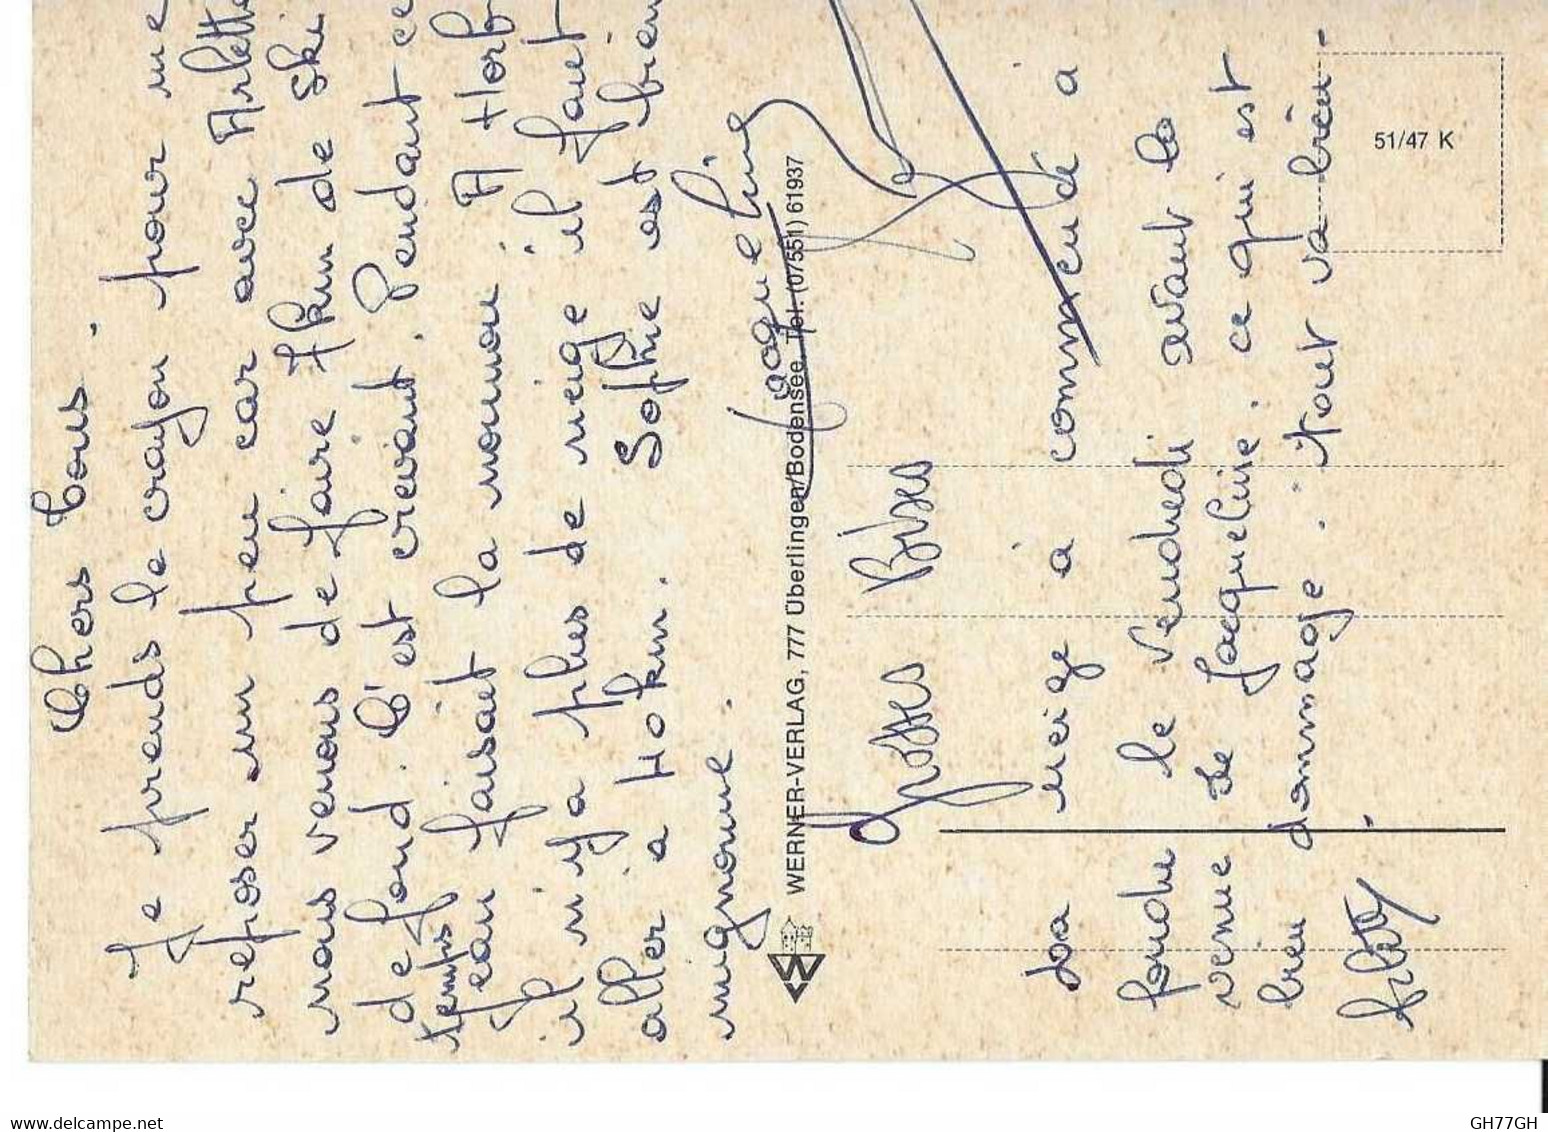 Chers tous.
Je prends le crayon pour me
reposer un peu car avec Arlette
nous venons de faire 7km de ski
de fond. C'est crevant. Pendant ce
temps
Jean faisait la nounou. A Horb
il n'y a plus de neige il faut
aller à 40km. Sophie est bien
mignonne.
Jacqueline
WERNER-VERLAG, 777 Überlingen/Bodensee, Tel. (07551) 61937
Grosses Bises
51/47 K
La neige a commencé à
fondre le Vendredi avant la
venue de Jacqueline, ce qui est
bien dommage. Tout va bien.
GH77GH